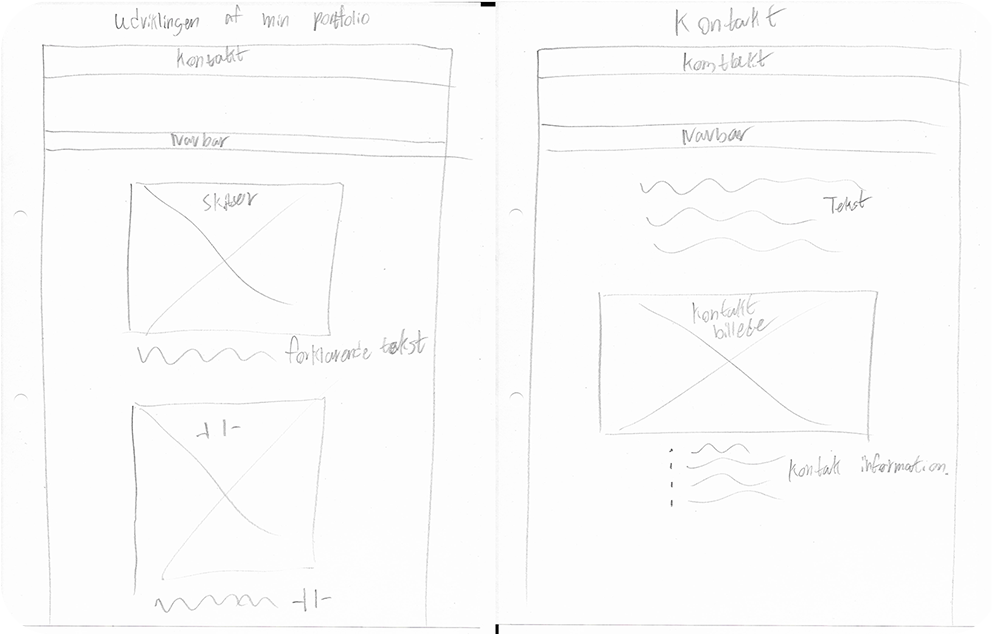 Udviklingen af min portfolio
Kontakt
Navbar
Skitser
forklarende tekst
-||-
-||-
Kontakt
Kontakt
Navbar
Tekst
Kontakt
billede
Kontakt information.